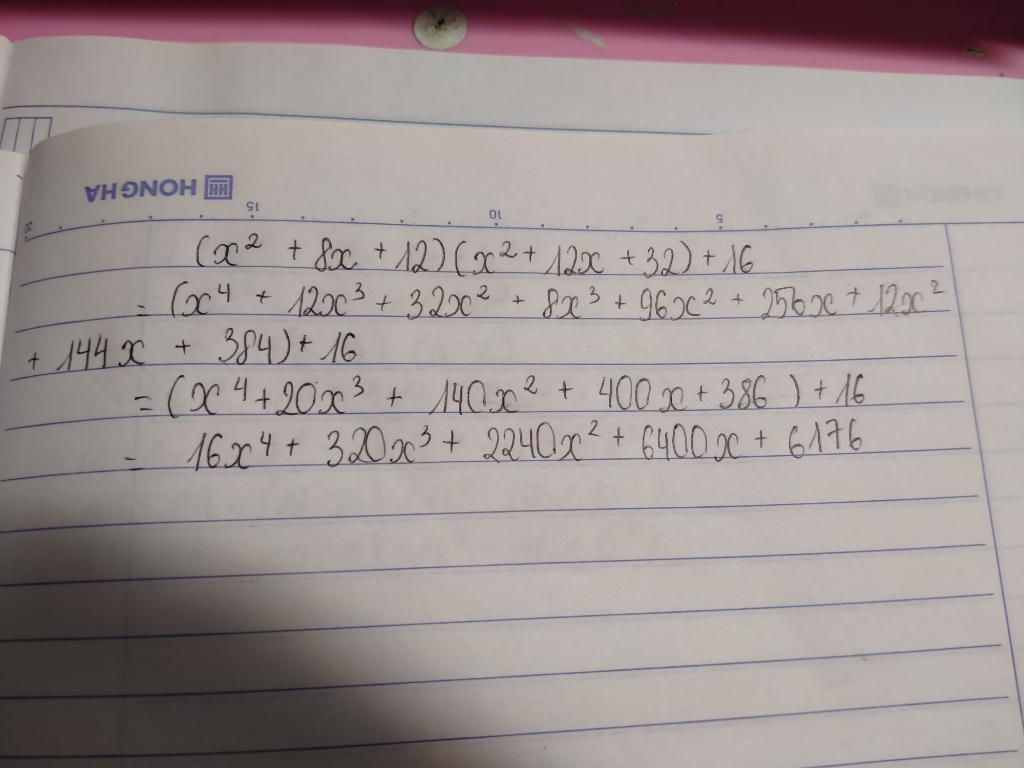 HONG HA
20 15 10 5
(x² + 8x + 12)(x² + 12x + 32) + 16
= (x⁴ + 12x³ + 32x² + 8x³ + 96x² + 256x + 12x²
+ 144x + 384) + 16
= (x⁴ + 20x³ + 140x² + 400x + 386) + 16
= 16x⁴ + 320x³ + 2240x² + 6400x + 6176